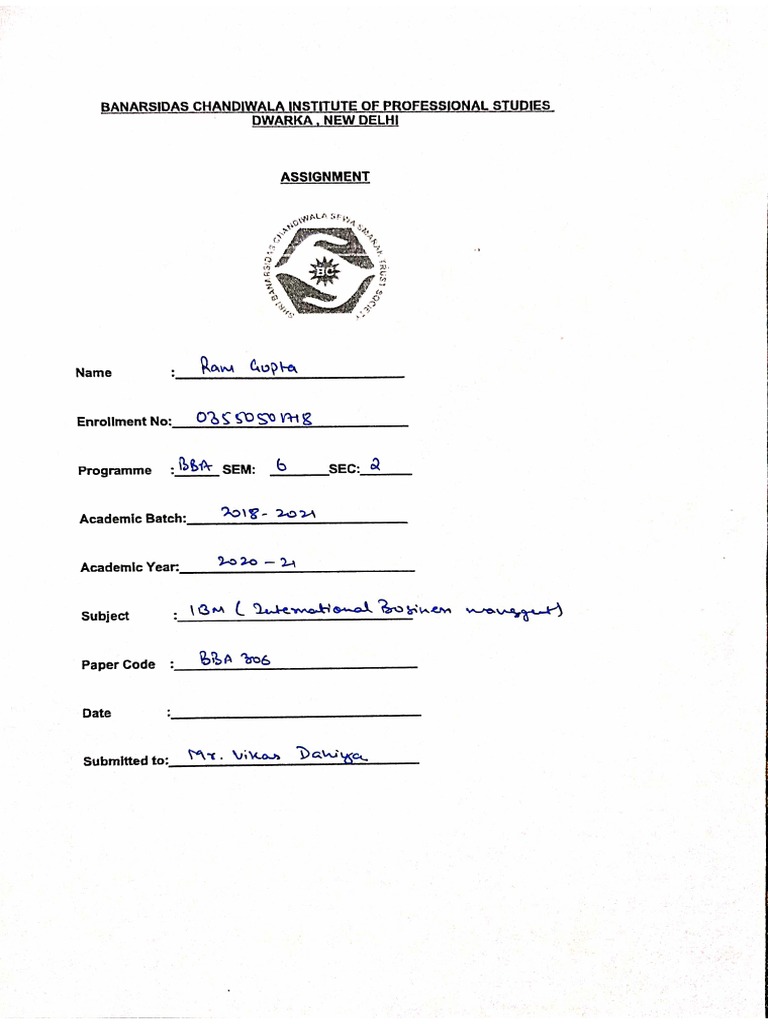 BANARSIDAS CHANDIWALA INSTITUTE OF PROFESSIONAL STUDIES
DWARKA , NEW DELHI
ASSIGNMENT
SHRI BANARSIDAS CHANDIWALA SEWA SMARAK TRUST SOCIETY
BC
Name : Ram Gupta
Enrollment No: 03550501718
Programme : BBA SEM: 6 SEC: 2
Academic Batch: 2018-2021
Academic Year: 2020-21
Subject : IBM ( International Business
Paper Code : BBA 306
Date :
Submitted to: Mr. Vikas Dahiya